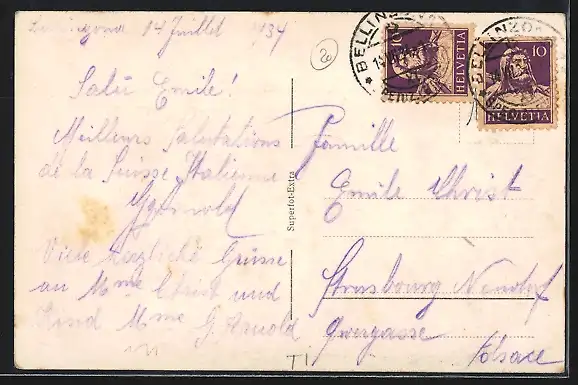 Bellinzona 14 Juillet 1934
Salü Emile!
Meilleurs Salutations
de la Suisse Italienne
G. Arnold
Viele herzliche Grüsse
an Mme Christ und
Mme G. Arnold
Superfot-Extra
Famille
Emile Christ
Strasbourg Neudorf
Alsace
T1
2
BELLINZONA
10
HELVETIA
BELLINZONA
10
HELVETIA